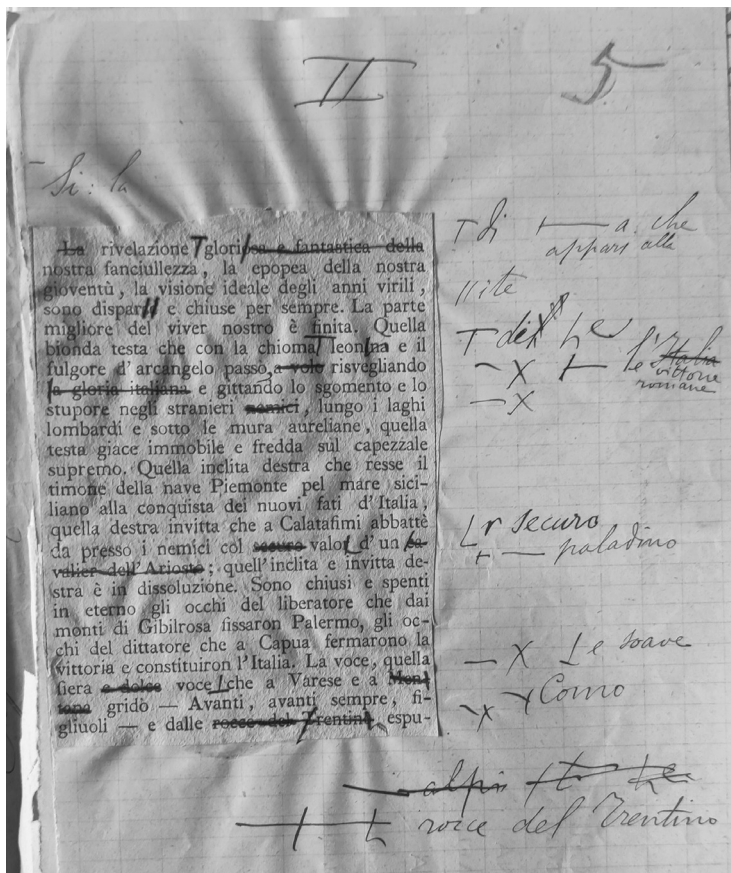 II
5
Si: la
La rivelazione gloriosa e fantastica della
nostra fanciullezza, la epopea della nostra
gioventù, la visione ideale degli anni virili,
sono dispar e chiuse per sempre. La parte
migliore del viver nostro è finita. Quella
bionda testa che con la chioma leonina e il
fulgore d'arcangelo passò, a volo risvegliando
la gloria italiana e gittando lo sgomento e lo
stupore negli stranieri nemici, lungo i laghi
lombardi e sotto le mura aureliane, quella
testa giace immobile e fredda sul capezzale
supremo. Quella inclita destra che resse il
timone della nave Piemonte pel mare sici-
liano alla conquista dei nuovi fati d'Italia,
quella destra invitta che a Calatafimi abbattè
da presso i nemici col securo valor d'un ca-
valier dell'Ariosto; quell'inclita e invitta de-
stra è in dissoluzione. Sono chiusi e spenti
in eterno gli occhi del liberatore che dai
monti di Gibilrosa fissaron Palermo, gli oc-
chi del dittatore che a Capua fermarono la
vittoria e constituiron l'Italia. La voce, quella
fiera e dolce voce che a Varese e a Men-
tana grido — Avanti, avanti sempre, fi-
gliuoli — e dalle rocce del Trentino, espu-
di a. che
appars alle
ite
di e
le l'Italia
vittorie
romane
r securo
paladino
e soave
Como
alpi
rocce del Trentino